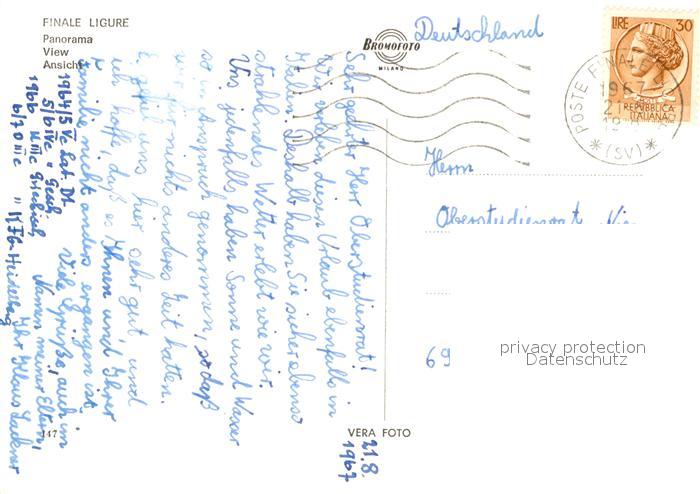 FINALE LIGURE
Panorama
View
Ansicht
BROMOFOTO
MILANO
Deutschland
LIRE 30
REPVBBLICA
ITALIANA
POSTE FINALE
196
21
19
*(SV)*
Herrn
Oberstudienrat
69
privacy protection
Datenschutz
VERA FOTO
147
21.8.
1967
Sehr geehrter Herr Oberstudienrat!
Wir verleben diesen Urlaub ebenfalls in
Italien. Deshalb haben Sie sicher ebenso
strahlendes Wetter erlebt wie wir.
Uns jedenfalls haben Sonne und Wasser
so in Anspruch genommen, so daß
wir für nichts anderes Zeit hatten.
Es gefiel uns hier sehr gut und
ich hoffe, daß es Ihnen und Ihrer
Familie nicht anders ergangen ist.
Viele Grüße, auch im
Namen meiner Eltern,
Ihr Klaus Lackner
1964/5 Va Lat. Dt.
5/6 IVc " Gesch.
1966 UIIIc Griechisch
6/7 OIIIc " KFG-Heidelberg